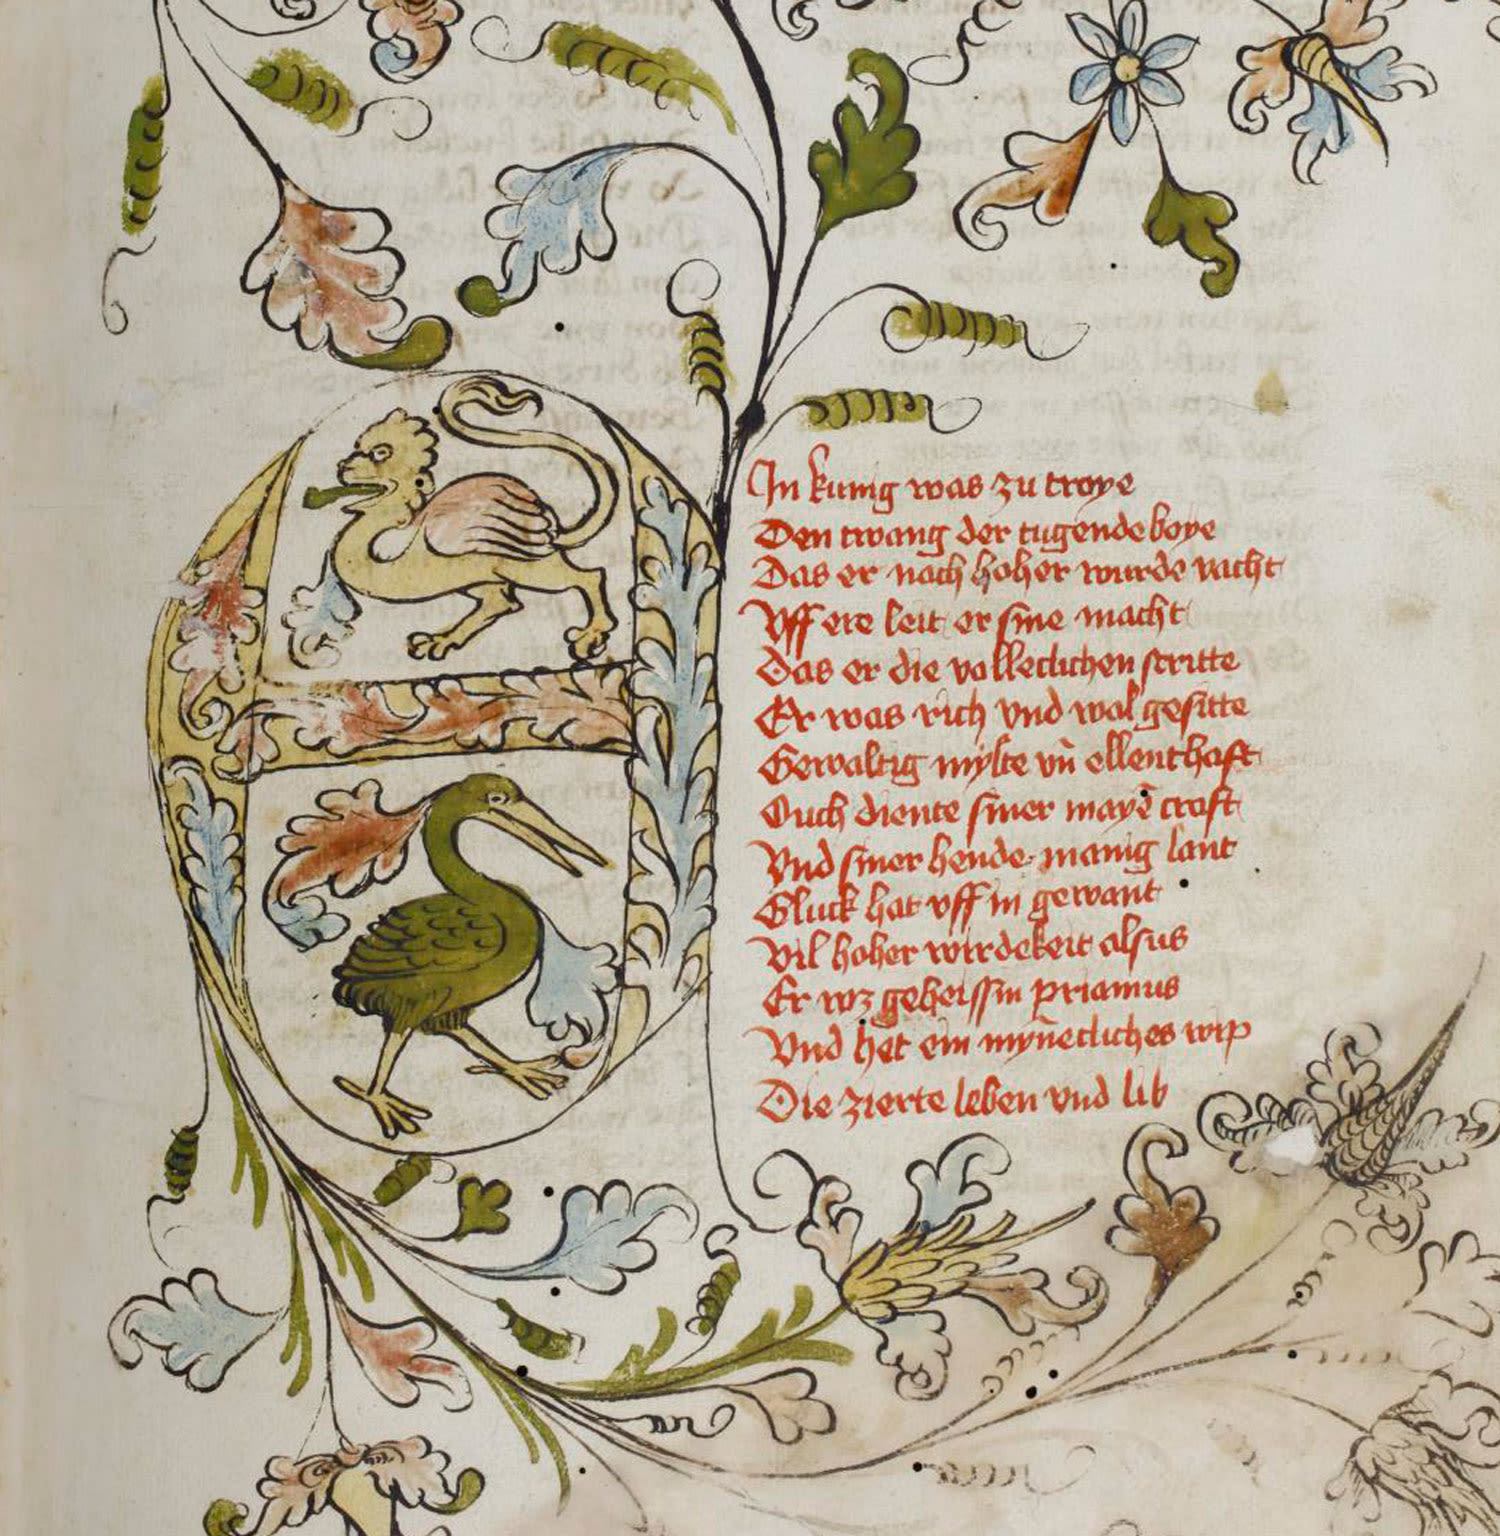 In kunig was zu troye
Den twang der tugende boye
Das er nach hoher wurde vacht
Vff ere leit er sine macht
Das er die volleclichen stritte
Er was rich vnd wol gesitte
Gewaltig mylte vn̄ ellenthaft
Ouch diente siner mayē craft
Vnd siner hende manig lant
Gluck hat vff in gewant
Vil hoher wirdekeit alsus
Er wz geheissin priamus
Vnd het ein myn̄ecliches wip
Die zierte leben vnd lib